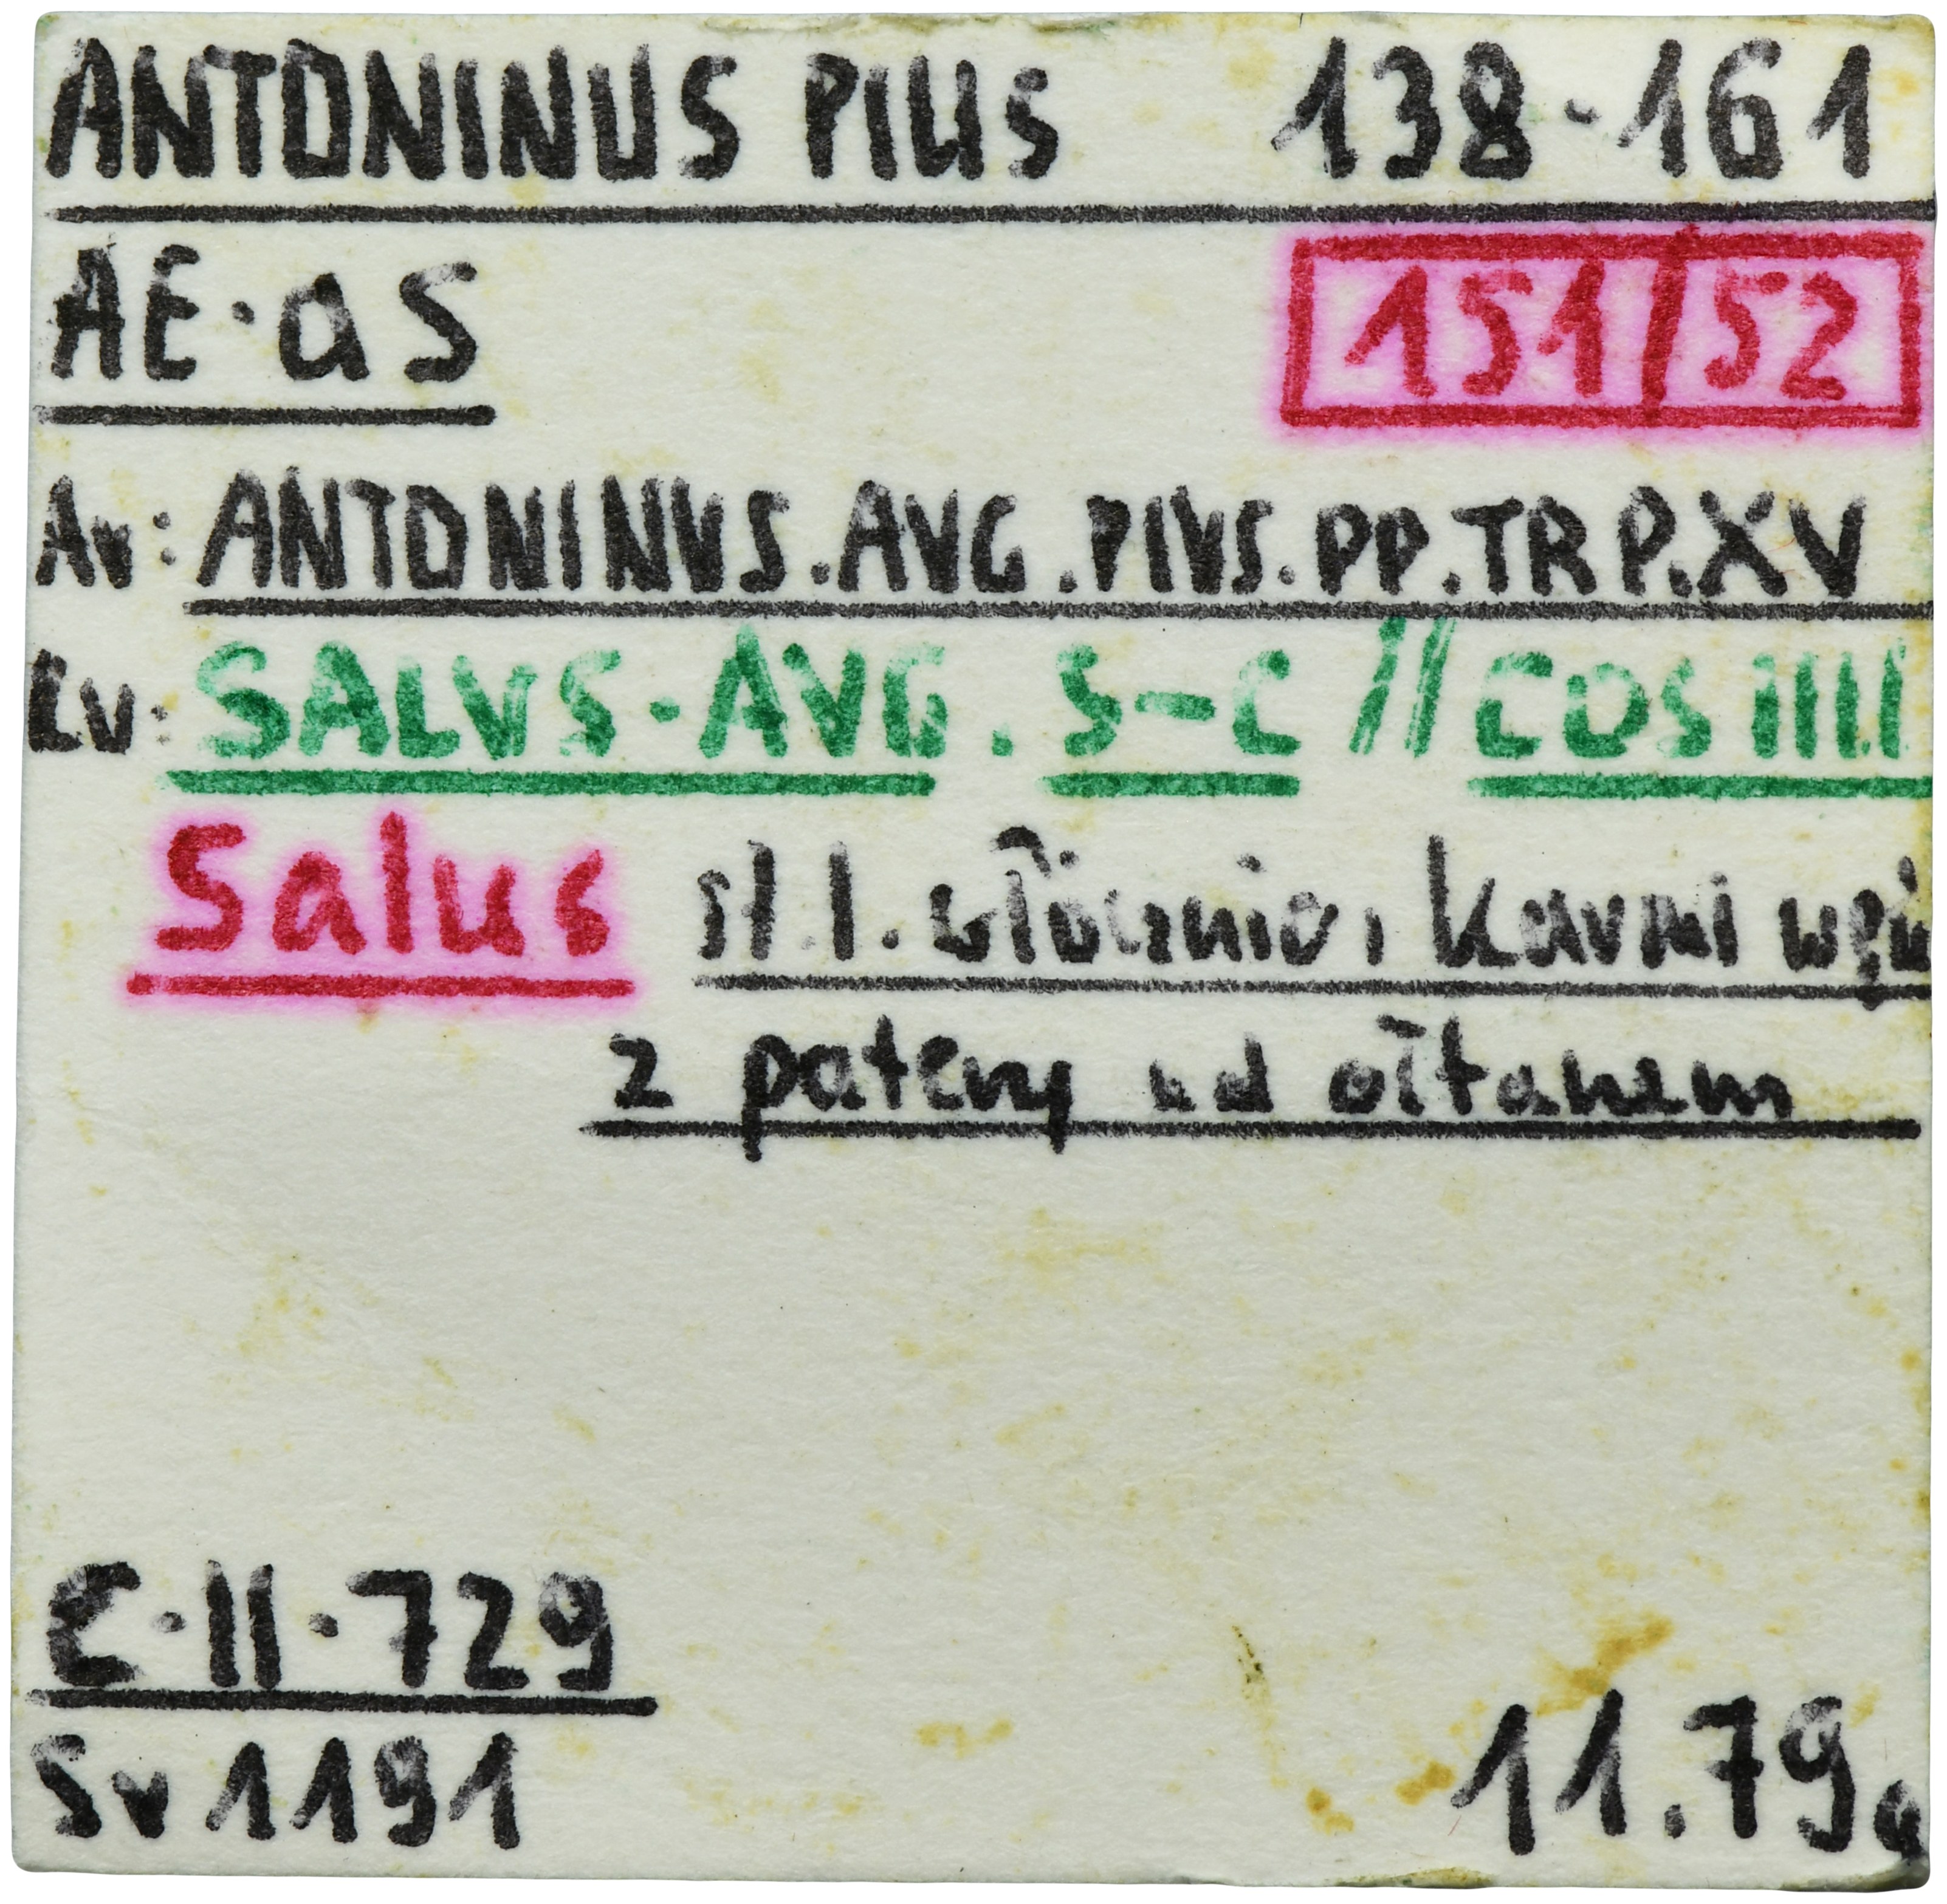 ANTONINUS PIUS 138-161
AE·as 151/52
Av: ANTONINVS.AVG.PIVS.PP.TR P.XV
Rv: SALVS·AVG. S-C // COS IIII
Salus st. l. włócznia, karmi
z patery nad ołtarzem
C·II·729
Sv 1191 11.79g